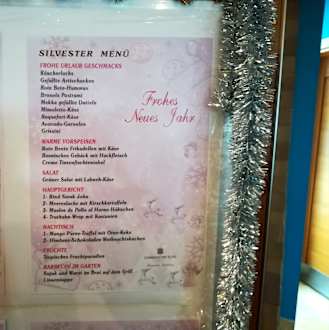 SILVESTER MENÜ
FROHE URLAUB GESCHMACKS
Räucherlachs
Gefüllte Artischocken
Rote Bete-Hummus
Bresola Pastrami
Mokka gefüllte Datteln
Mimolette-Käse
Roquefort-Käse
Avocado-Garnelen
Grissini
Frohes
Neues Jahr
WARME VORSPEISEN
Rote Beete Frikadellen mit Käse
Bosnisches Gebäck mit Hackfleisch
Creme Tintenfischtentakel
SALAT
Grüner Salat mit Labneh-Käse
HAUPTGERICHT
1- Rind
2- Meereslachs mit Kirschkartoffeln
3-
4- Truthahn-Wrap mit Kastanien
NACHTISCH
1- Mango Püree-Trüffel mit Oreo-Keks
2- Himbeer-Schokoladen Weihnachtskuchen
FRÜCHTE
Tropisches Fruchtparadies
BARBECUE IM GARTEN
Sujuk und Wurst im Brot auf dem Grill